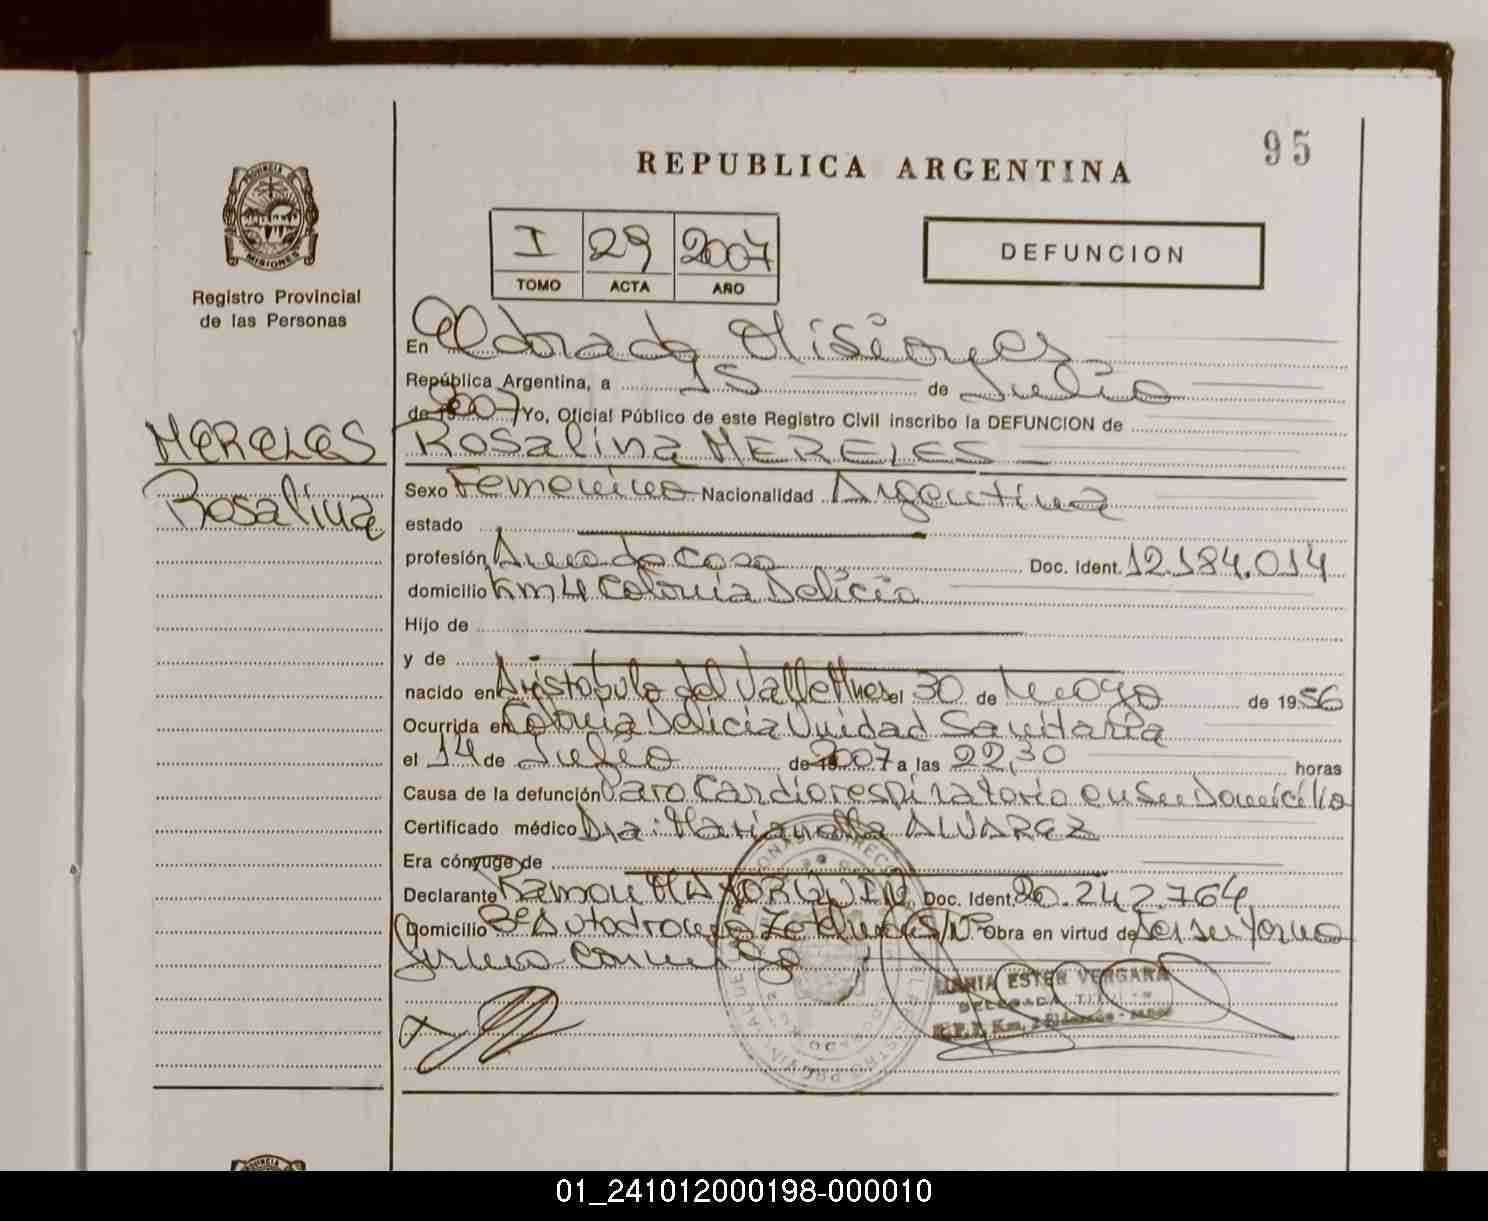 95
REPUBLICA ARGENTINA
PROVINCIA DE MISIONES
I 29 2007
TOMO ACTA AÑO
DEFUNCION
Registro Provincial
de las Personas
En Eldorado Misiones
República Argentina, a 15 de Julio
de 2007 Yo, Oficial Público de este Registro Civil inscribo la DEFUNCION de
MERELES
Rosalina MERELES
Rosalina
Sexo Femenino Nacionalidad Argentina
estado
profesión Ama de casa Doc. Ident. 12.184.014
domicilio Km 4 Colonia Delicia
Hijo de
y de
nacido en Aristobulo del Valle Mnes el 30 de Mayo de 1956
Ocurrida en Colonia Delicia Unidad Sanitaria
el 14 de Julio de 2007 a las 22,30 horas
Causa de la defunción Paro Cardiorespiratorio en su Domicilio
Certificado médico Dra: Marianella ALVAREZ
Era cónyuge de
Declarante Ramon Doc. Ident. 20.242.764
Domicilio Bº Autodromo S/Nº Obra en virtud de Ser su Yerno
firma Conmigo
MARIA ESTER VERGARA
DELEGADA
01_241012000198-000010